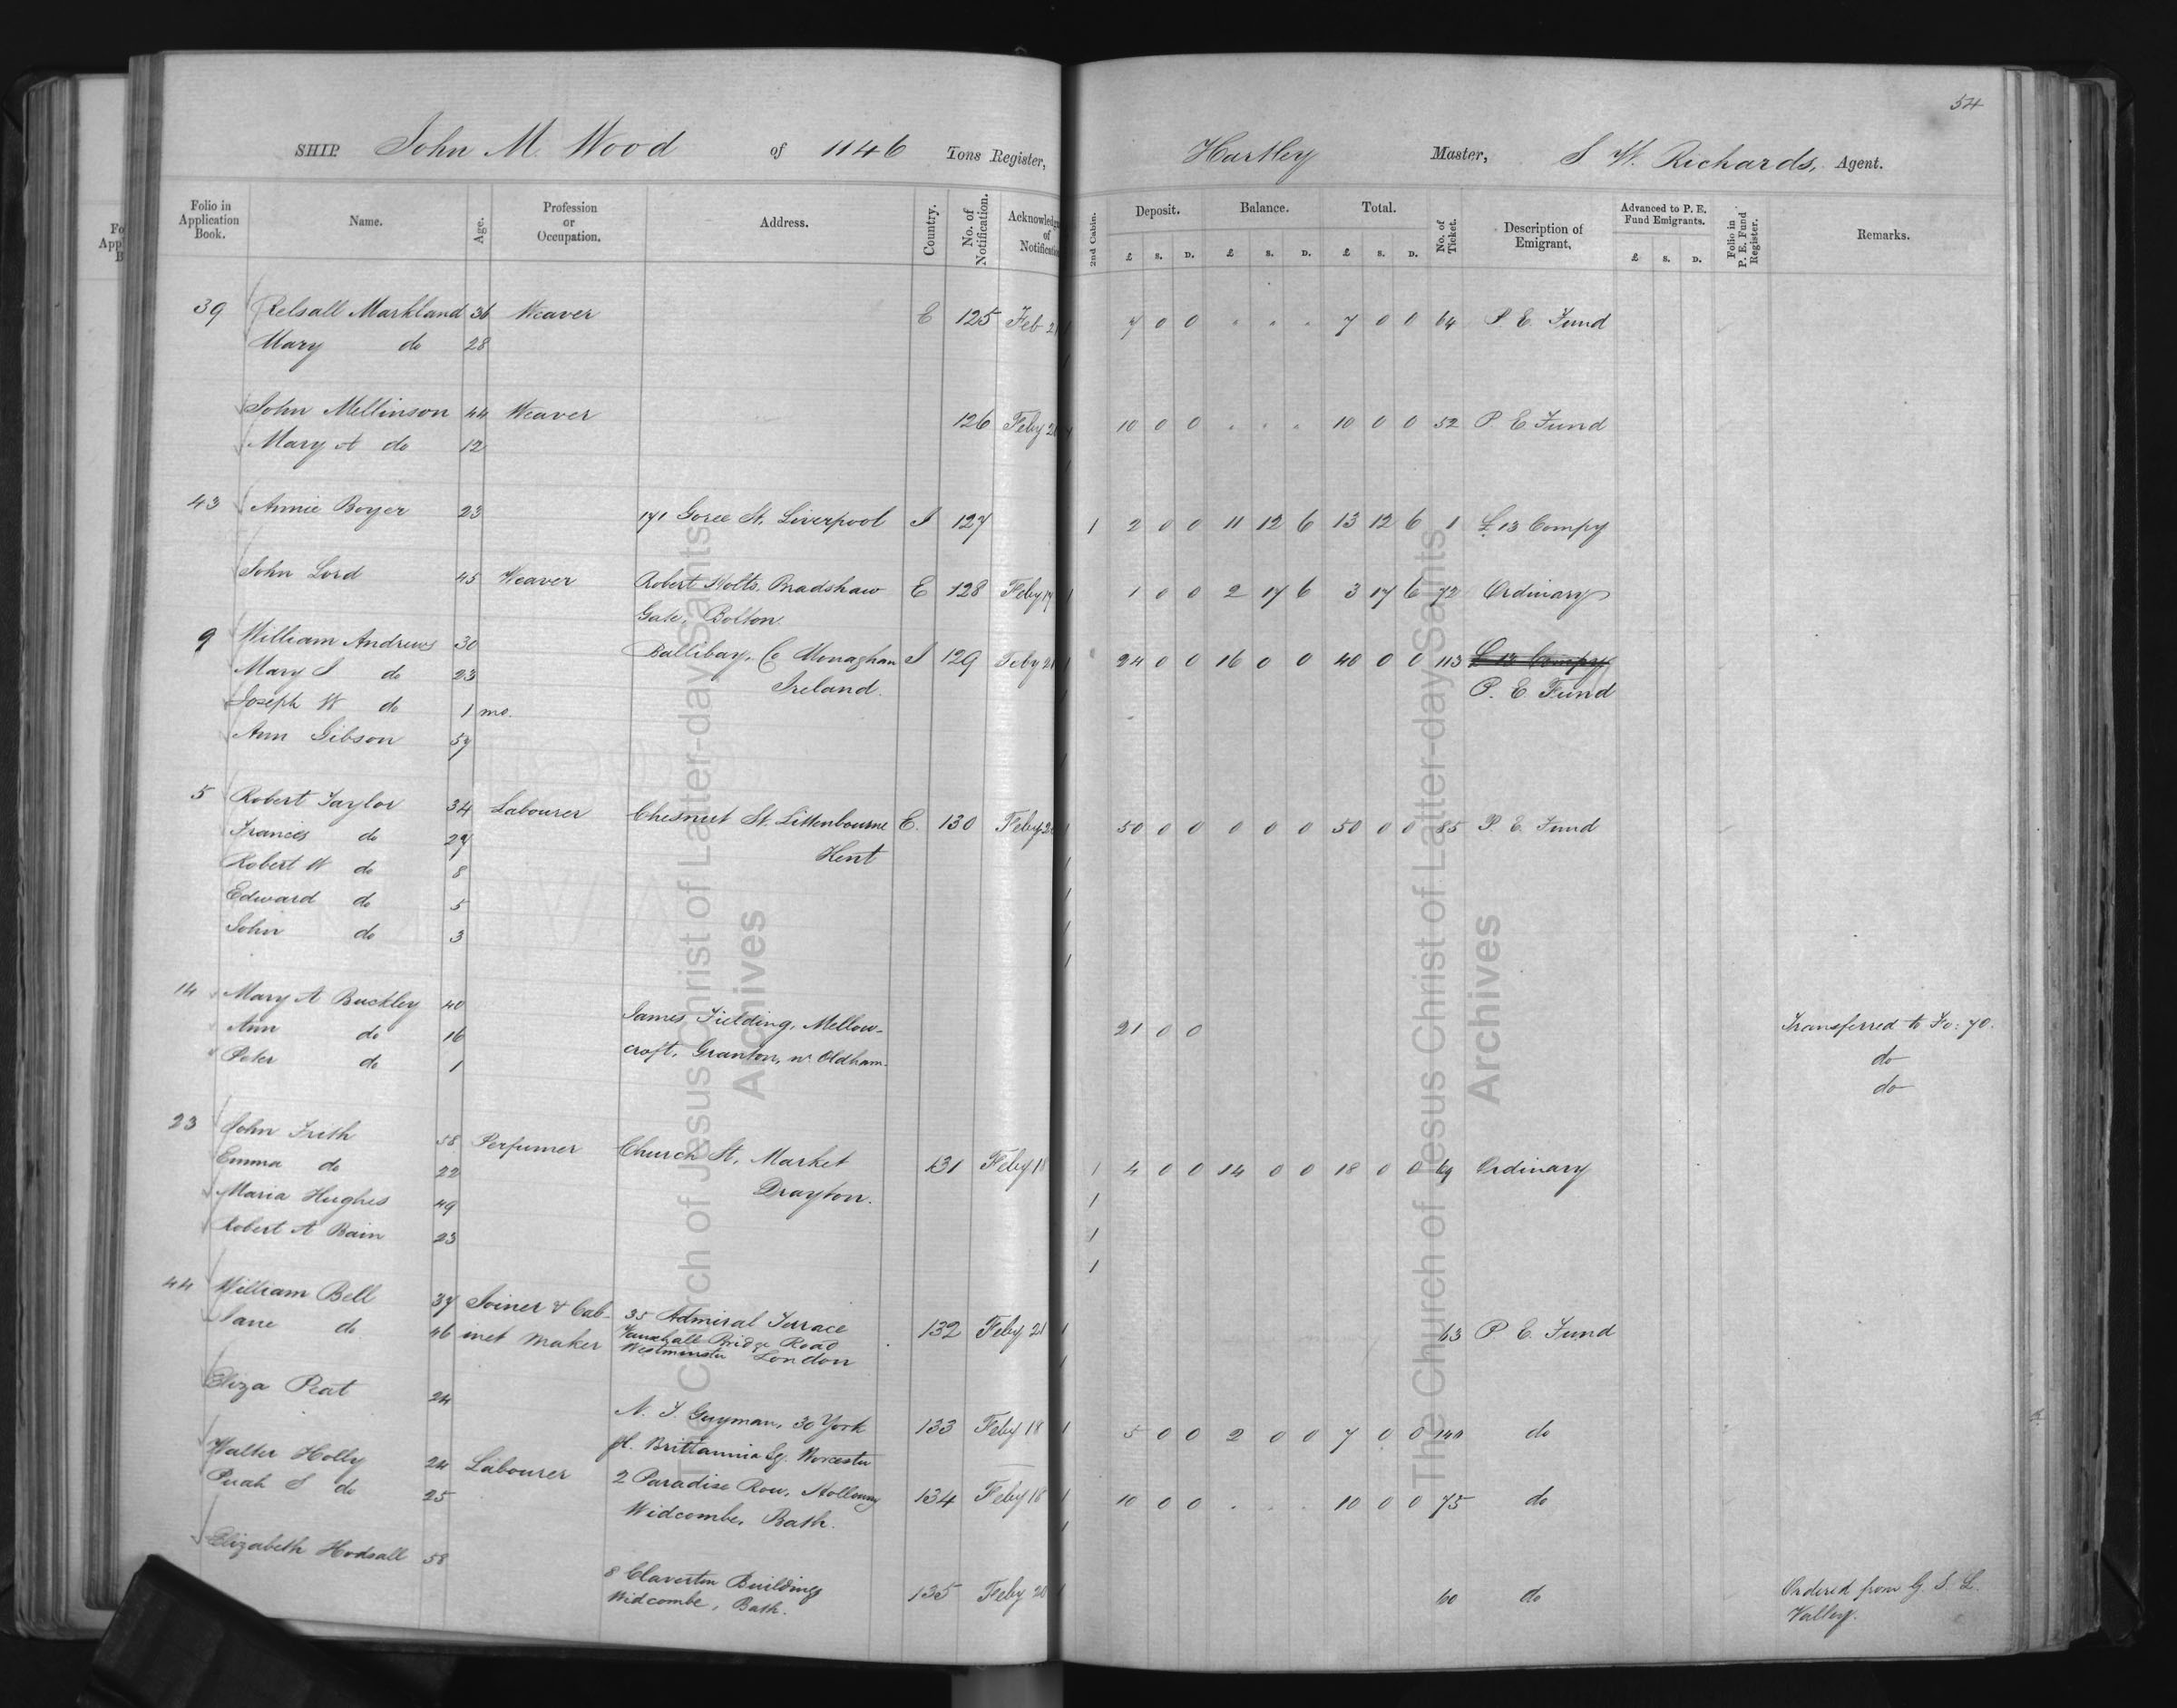 54
SHIP. John M. Wood of 1146 Tons Register, Hartley Master, S W. Richards, Agent.
Folio in Application Book. Name. Age. Profession or Occupation. Address. Country. No. of Notification. Acknowledgm of Notification 2nd Cabin. Deposit. Balance. Total. No. of Ticket. Description of Emigrant. Advanced to P. E. Fund Emigrants. Folio in P. E. Fund Register. Remarks.
£ S. D. £ S. D. £ S. D. £ S. D.
39 Relsall Markland 36 Weaver E 125 Feb 21 7 0 0 " " " 7 0 0 64 P. E. Fund
Mary do 28
John Mellinson 44 Weaver 126 Feby 20 10 0 0 " " " 10 0 0 52 P E Fund
Mary A do 12
43 Annie Boyer 23 171 Goree St. Liverpool I 127 1 2 0 0 11 12 6 13 12 6 1 £13 Compy
John Lord 45 Weaver Robert Holts, Bradshaw E 128 Feby 17 1 1 0 0 2 17 6 3 17 6 72 Ordinary
Gate, Bolton.
9 William Andrews 30 Ballibay, Co Monaghan I 129 Feby 21 1 24 0 0 16 0 0 40 0 0 113 £13 Compy
Mary S do 23 Ireland. P. E. Fund
Joseph W do 1 mo.
Ann Gibson 57
5 Robert Taylor 34 Labourer Chesnut St. Littenbourne E. 130 Feby 20 1 50 0 0 0 0 0 50 0 0 85 P. E. Fund
Frances do 27 Kent
Robert W do 8
Edward do 5
John do 3
14 Mary A Buckley 40 James Fielding, Mellow- 21 0 0 Transferred to Fo: 70.
Ann do 16 croft, Granton, nr Oldham. do
Peter do 1 do
23 John Frith 58 Perfumer Church St, Market 131 Feby 18 1 4 0 0 14 0 0 18 0 0 69 Ordinary
Emma do 22 Drayton. 1
Maria Hughes 49 1
Robert A Bain 23 1
44 William Bell 37 Joiner & Cab- 35 Admiral Terrace 132 Feby 21 1 63 P E. Fund
Jane do 46 inet Maker Vauxhall Bridge Road
Westminster London
Eliza Peat 24 N. T. Guyman, 30 York 133 Feby 18 1 5 0 0 2 0 0 7 0 0 140 do
pl. Brittannia Sq. Worcester
Walter Holly 24 Labourer 2 Paradise Row, Holloway 134 Feby 18 1 10 0 0 . . . 10 0 0 75 do
Puah S do 25 Widcombe, Bath.
Elizabeth Hodsall 58 8 Claverton Buildings 135 Feby 20 1 60 do Ordered from G. S. L.
Widcombe, Bath. Valley.
The Church of Jesus Christ of Latter-day Saints
Archives
The Church of Jesus Christ of Latter-day Saints
Archives